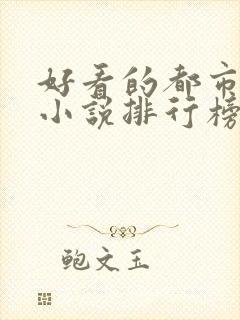 好看的都市
小说排行榜
鲍文玉